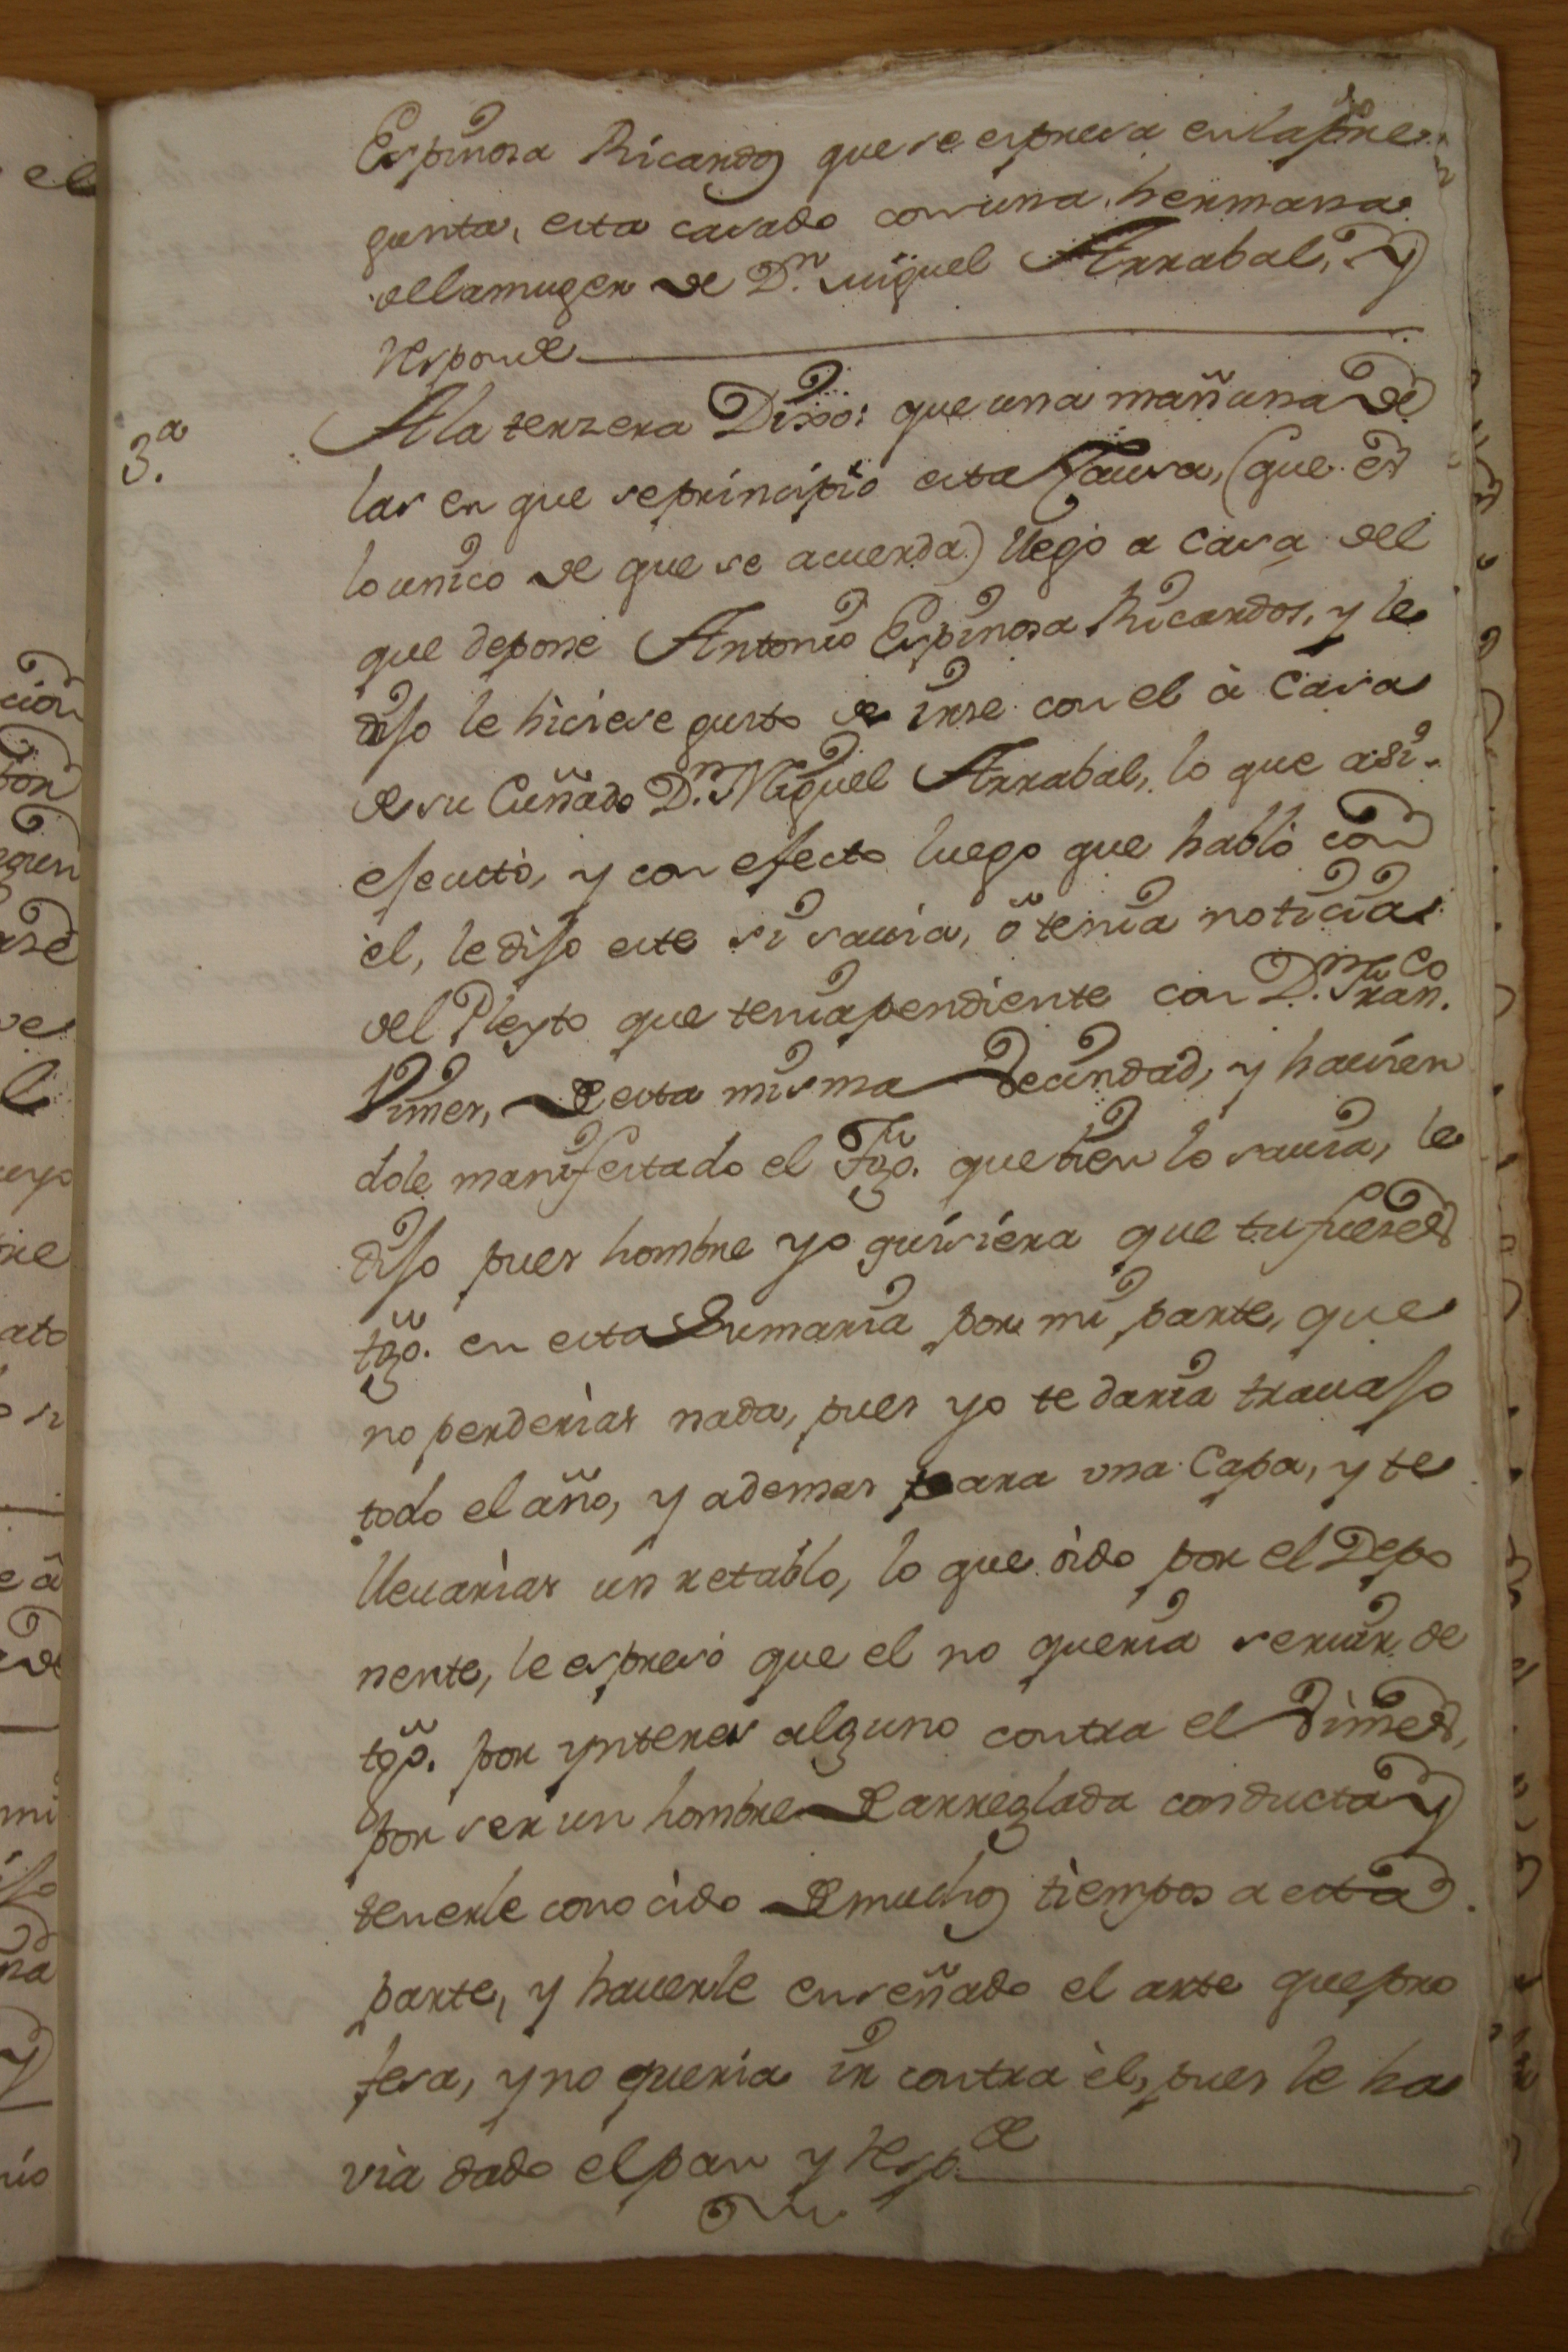 Espinosa Ricardos que se espresa en la pre
gunta, esta casado con una hermana
de la muger de D.n Miguel Arrabal, y
responde
3.a A la terzera Dixo: que una mañana de
las en que se principio esta Causa, (que es
lo unico de que se acuerda) llegó a casa del
que depone Antonio Espinosa Ricardos, y le
dijo le hiciese gusto de irse con el à Casa
de su Cuñado D.n Miguel Arrabal, lo que asi
ejecutò, y con efecto luego que habló con
el, le dijo este si savia, ò tenia noticias
del Pleyto que tenia pendiente con D.n Fran.co
Vimes, de esta misma Vecindad, y havien
dole manifestado el Tgo. que bien lo savia, le
dijo pues hombre yo quisiera que tu fueses
tgo. en esta Sumaria por mi parte, que
no perderias nada, pues yo te daria travajo
todo el año, y ademas para una Capa, y te
llevarias un retablo, lo que oido por el Depo
nente, le espresó que el no queria servir de
tgo. por ynteres alguno contra el Vimes,
por ser un hombre de arreglada conducta y
tenerle conocido de muchos tiempos a esta
parte, y haverle enseñado el arte que pro
fesa, y no queria ir contra èl, pues le ha
via dado el pan y resp.de